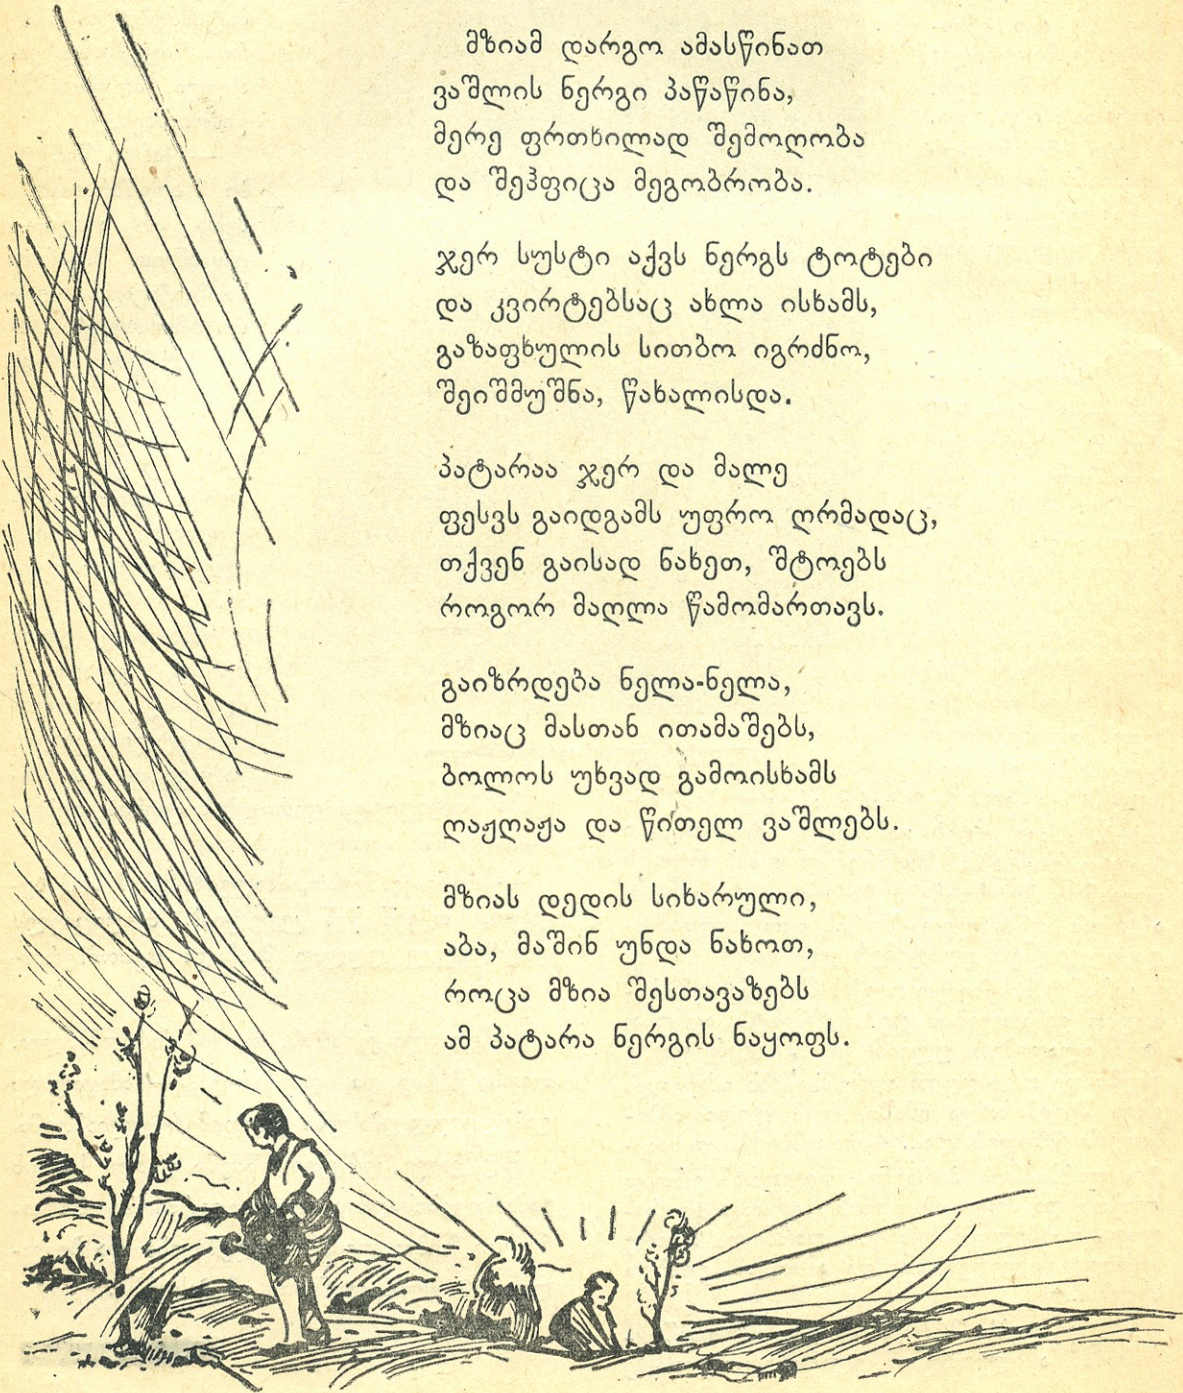 მზიამ დარგო ამასწინათ
ვაშლის ნერგი პაწაწინა,
მერე ფრთხილად შემოღობა
და შეჰფიცა მეგობრობა.
ჯერ სუსტი აქვს ნერგს ტოტები
და კვირტებსაც ახლა ისხამს,
გაზაფხულის სითბო იგრძნო,
შეიშმუშნა, წახალისდა.
პატარაა ჯერ და მალე
ფესვს გაიდგამს უფრო ღრმადაც,
თქვენ გაისად ნახეთ, შტოებს
როგორ მაღლა წამომართავს.
გაიზრდება ნელა-ნელა,
მზიაც მასთან ითამაშებს,
ბოლოს უხვად გამოისხამს
ღაჟღაჟა და წითელ ვაშლებს.
მზიას დედის სიხარული,
აბა, მაშინ უნდა ნახოთ,
როცა მზია შესთავაზებს
ამ პატარა ნერგის ნაყოფს.